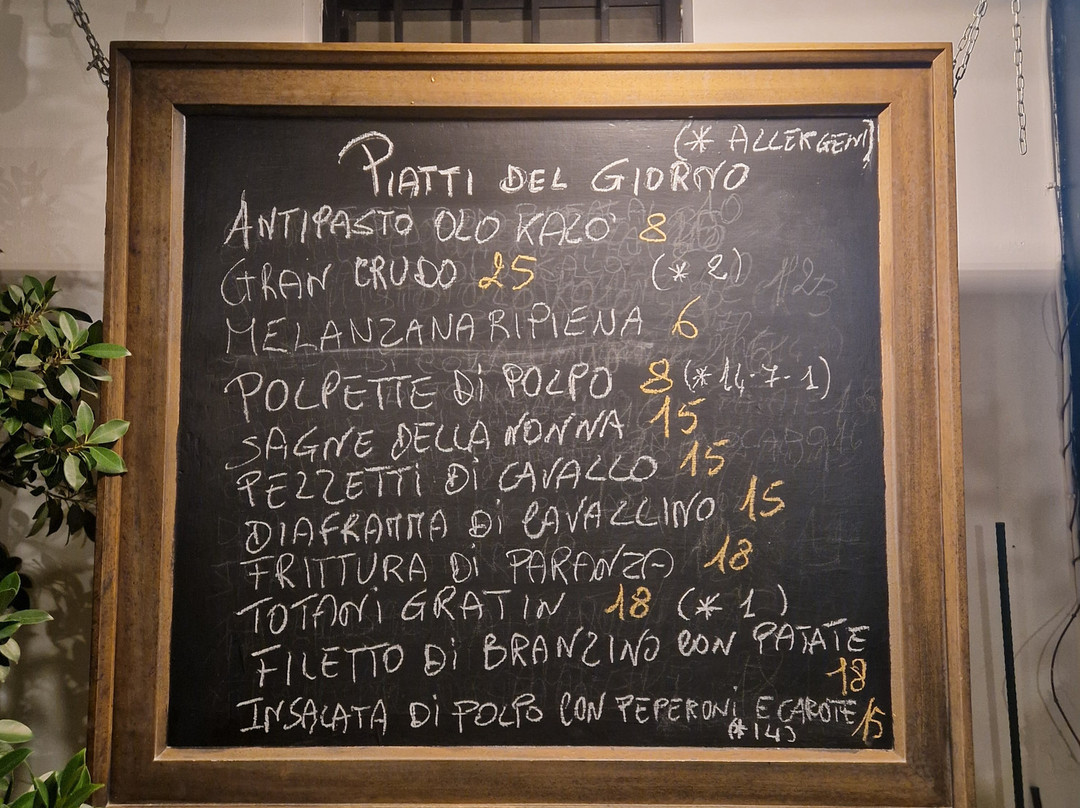 (* ALLERGENI)
PIATTI DEL GIORNO
ANTIPASTO OLO KALO' 8
GRAN CRUDO 25 (* 2)
MELANZANA RIPIENA 6
POLPETTE Di POLPO 8 (* 14-7-1)
SAGNE DELLA NONNA 15
PEZZETTi Di CAVALLO 15
DIAFRAMMA Di CAVALLINO 15
FRITTURA Di PARANZA 18
TOTANi GRATIN 18 (* 1)
FILETTO Di BRANZINO CON PATATE
18
INSALATA Di POLPO CON PEPERONi E CAROTE 15